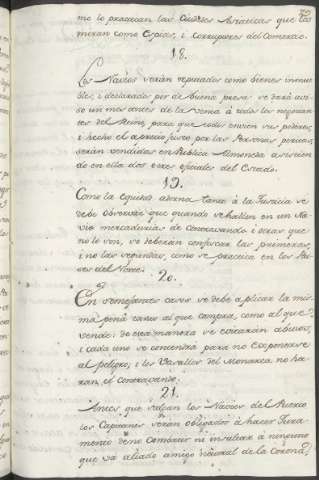 mo lo practican las Ciudades Anseaticas que las
miran como Espias, i corruptores del Comercio.
18.
Los Navios serán reputados como bienes inmue
bles, i declarados por de buena presa se dará avi
so un mes antes de la venta á todos los negocian
tes del Reino, para que todos envien sus poderes,
i hecho el aprecio justo por las Personas peritas,
serán vendidos en Publica Almoneda asistien
do en ella dos ó tres oficiales del Estado.
19.
Como la equidad adorna tanto á la Justicia se
debe observar que quando se hallen en un Na
vio mercadurias de Contravando i otras que
no lo son, se deberán confiscar las primeras,
i no las segundas, como se practica en los Pai
ses del Norte.
20.
En semejantes casos se debe aplicar la mis
ma pena tanto al que compra, como al que
vende: de esta manera se evitarán abusos,
i cada uno se contendrá para no exponerse
al peligro, i los Vasallos del Monarca no ha
rán el contravando.
21.
Antes que salgan los Navios del Puerto
los Capitanes serán obligados á hacer Jura
mento de no combatir ni insultar á ninguno
que sea aliado amigo ó neutral de la Corona,